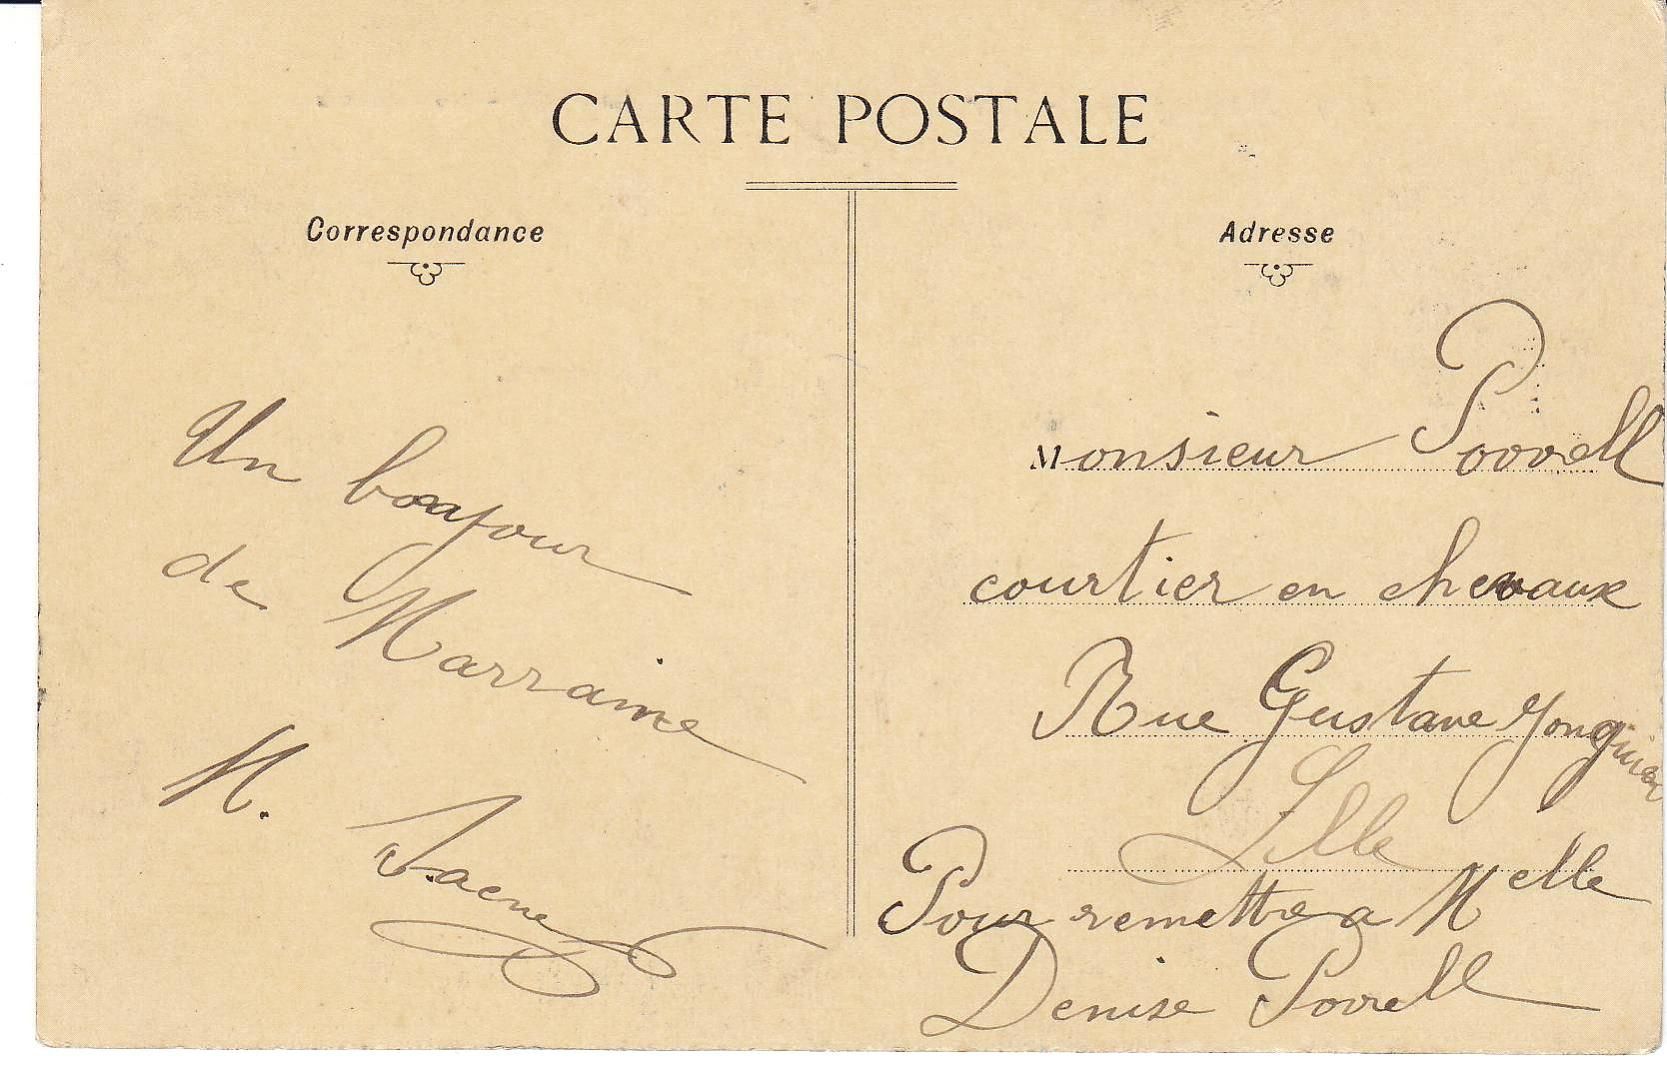 CARTE POSTALE
Correspondance
Un bonjour
de Marraine
M.
Adresse
Monsieur
courtier en chevaux
Rue Gustave
Lille
Pour remettre a Melle
Denise